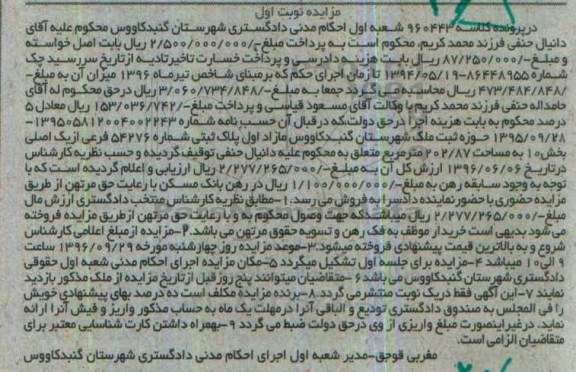 مزایده نوبت اول
درپرونده کلاسه ۹۶۰۴۴۳ شعبه اول احکام مدنی دادگستری شهرستان گنبدکاووس محکوم علیه آقای
دانیال حنفی فرزند محمد کریم، محکوم است به پرداخت مبلغ-/۲/۵۰۰/۰۰۰/۰۰۰ ریال بابت اصل خواسته
و مبلغ-/۸۷/۲۵۰/۰۰۰ ریال بابت هزینه دادرسی و پرداخت خسارت تاخیرتادیه ازتاریخ سررسید چک
شماره ۸۶۴۴۸۹۵۵-۱۳۹۴/۰۵/۱۹ تا زمان اجرای حکم که برمبنای شاخص تیرماه ۱۳۹۶ میزان آن به مبلغ-
/۴۷۳/۴۸۴/۸۴۸ ریال محاسبه می گردد جمعا به مبلغ-/۳/۰۶۰/۷۳۴/۸۴۸ ریال درحق محکوم له آقای
حامداله حنفی فرزند محمد کریم با وکالت آقای مسعود قیاسی و پرداخت مبلغ-/۱۵۳/۰۳۶/۷۴۲ ریال معادل ۵
درصد محکوم به بابت هزینه اجرا درحق دولت،که درقبال آن حسب نامه شماره ۱۳۹۵۰۵۸۱۲۰۰۴۰۰۲۲۴۳-
۱۳۹۵/۰۹/۲۸ حوزه ثبت ملک شهرستان گنبدکاووس مازاد اول پلاک ثبتی شماره ۵۴۲۷۶ فرعی ازیک اصلی
بخش۱۰ به مساحت ۲۰۲/۸۷ مترمربع متعلق به محکوم علیه دانیال حنفی توقیف گردیده و حسب نظریه کارشناس
درتاریخ ۱۳۹۶/۰۶/۰۶ ارزش کل آن به مبلغ-/۲/۲۷۷/۲۶۵/۰۰۰ ریال ارزیابی و اعلام گردیده است که با
توجه به وجود سابقه رهن به مبلغ-/۱/۱۰۰/۰۰۰/۰۰۰ ریال در رهن بانک مسکن با رعایت حق مرتهن از طریق
مزایده حضوری با حضور نماینده دادسرا به فروش می رسد.۱-مطابق نظریه کارشناس منتخب دادگستری ارزش مال
مبلغ-/۲/۲۷۷/۲۶۵/۰۰۰ ریال میباشدکه جهت وصول محکوم به و با رعایت حق مرتهن ازطریق مزایده فروخته
می شود بدیهی است خریدار موظف به فک رهن و تسویه حقوق مرتهن می باشد.۲-مزایده از مبلغ اعلامی کارشناس
شروع و به بالاترین قیمت پیشنهادی فروخته میشود.۳-موعد مزایده روز چهارشنبه مورخه ۱۳۹۶/۰۹/۲۹ ساعت
۹ الی ۱۰ میباشد ۴-مزایده برای جلسه اول تشکیل میگردد ۵-مکان مزایده اجرای احکام مدنی شعبه اول حقوقی
دادگستری شهرستان گنبدکاووس می باشد ۶-متقاضیان میتوانند پنج روز قبل ازتاریخ مزایده از ملک مذکور بازدید
نمایند ۷-این آگهی فقط دریک نوبت منتشرمی گردد.۸-برنده مزایده مکلف است ده درصد بهای پیشنهادی خویش
را فی المجلس به صندوق دادگستری تودیع و الباقی آنرا درمهلت یک ماه به حساب مذکور واریز و فیش آنرا ارائه
نماید. درغیراینصورت مبلغ واریزی از وی درحق دولت ضبط می گردد ۹-بهمراه داشتن کارت شناسایی معتبر برای
متقاضیان الزامی است.
مغربی قوجق-مدیر شعبه اول اجرای احکام مدنی دادگستری شهرستان گنبدکاووس